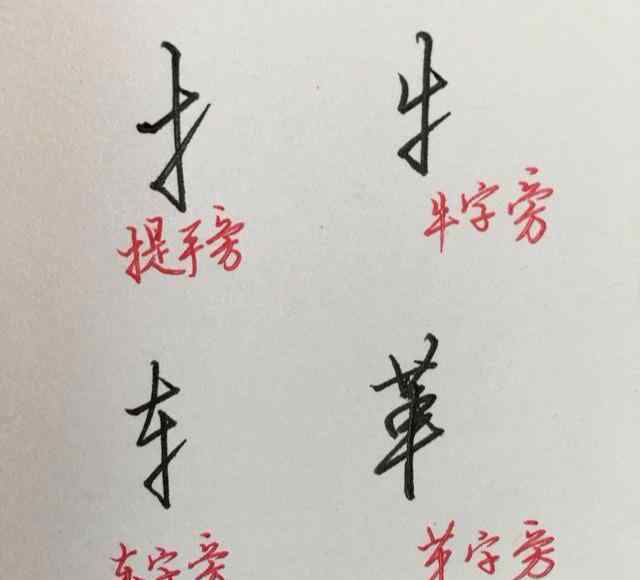 扌 牜
提手旁 牛字旁
车 革
车字旁 革字旁